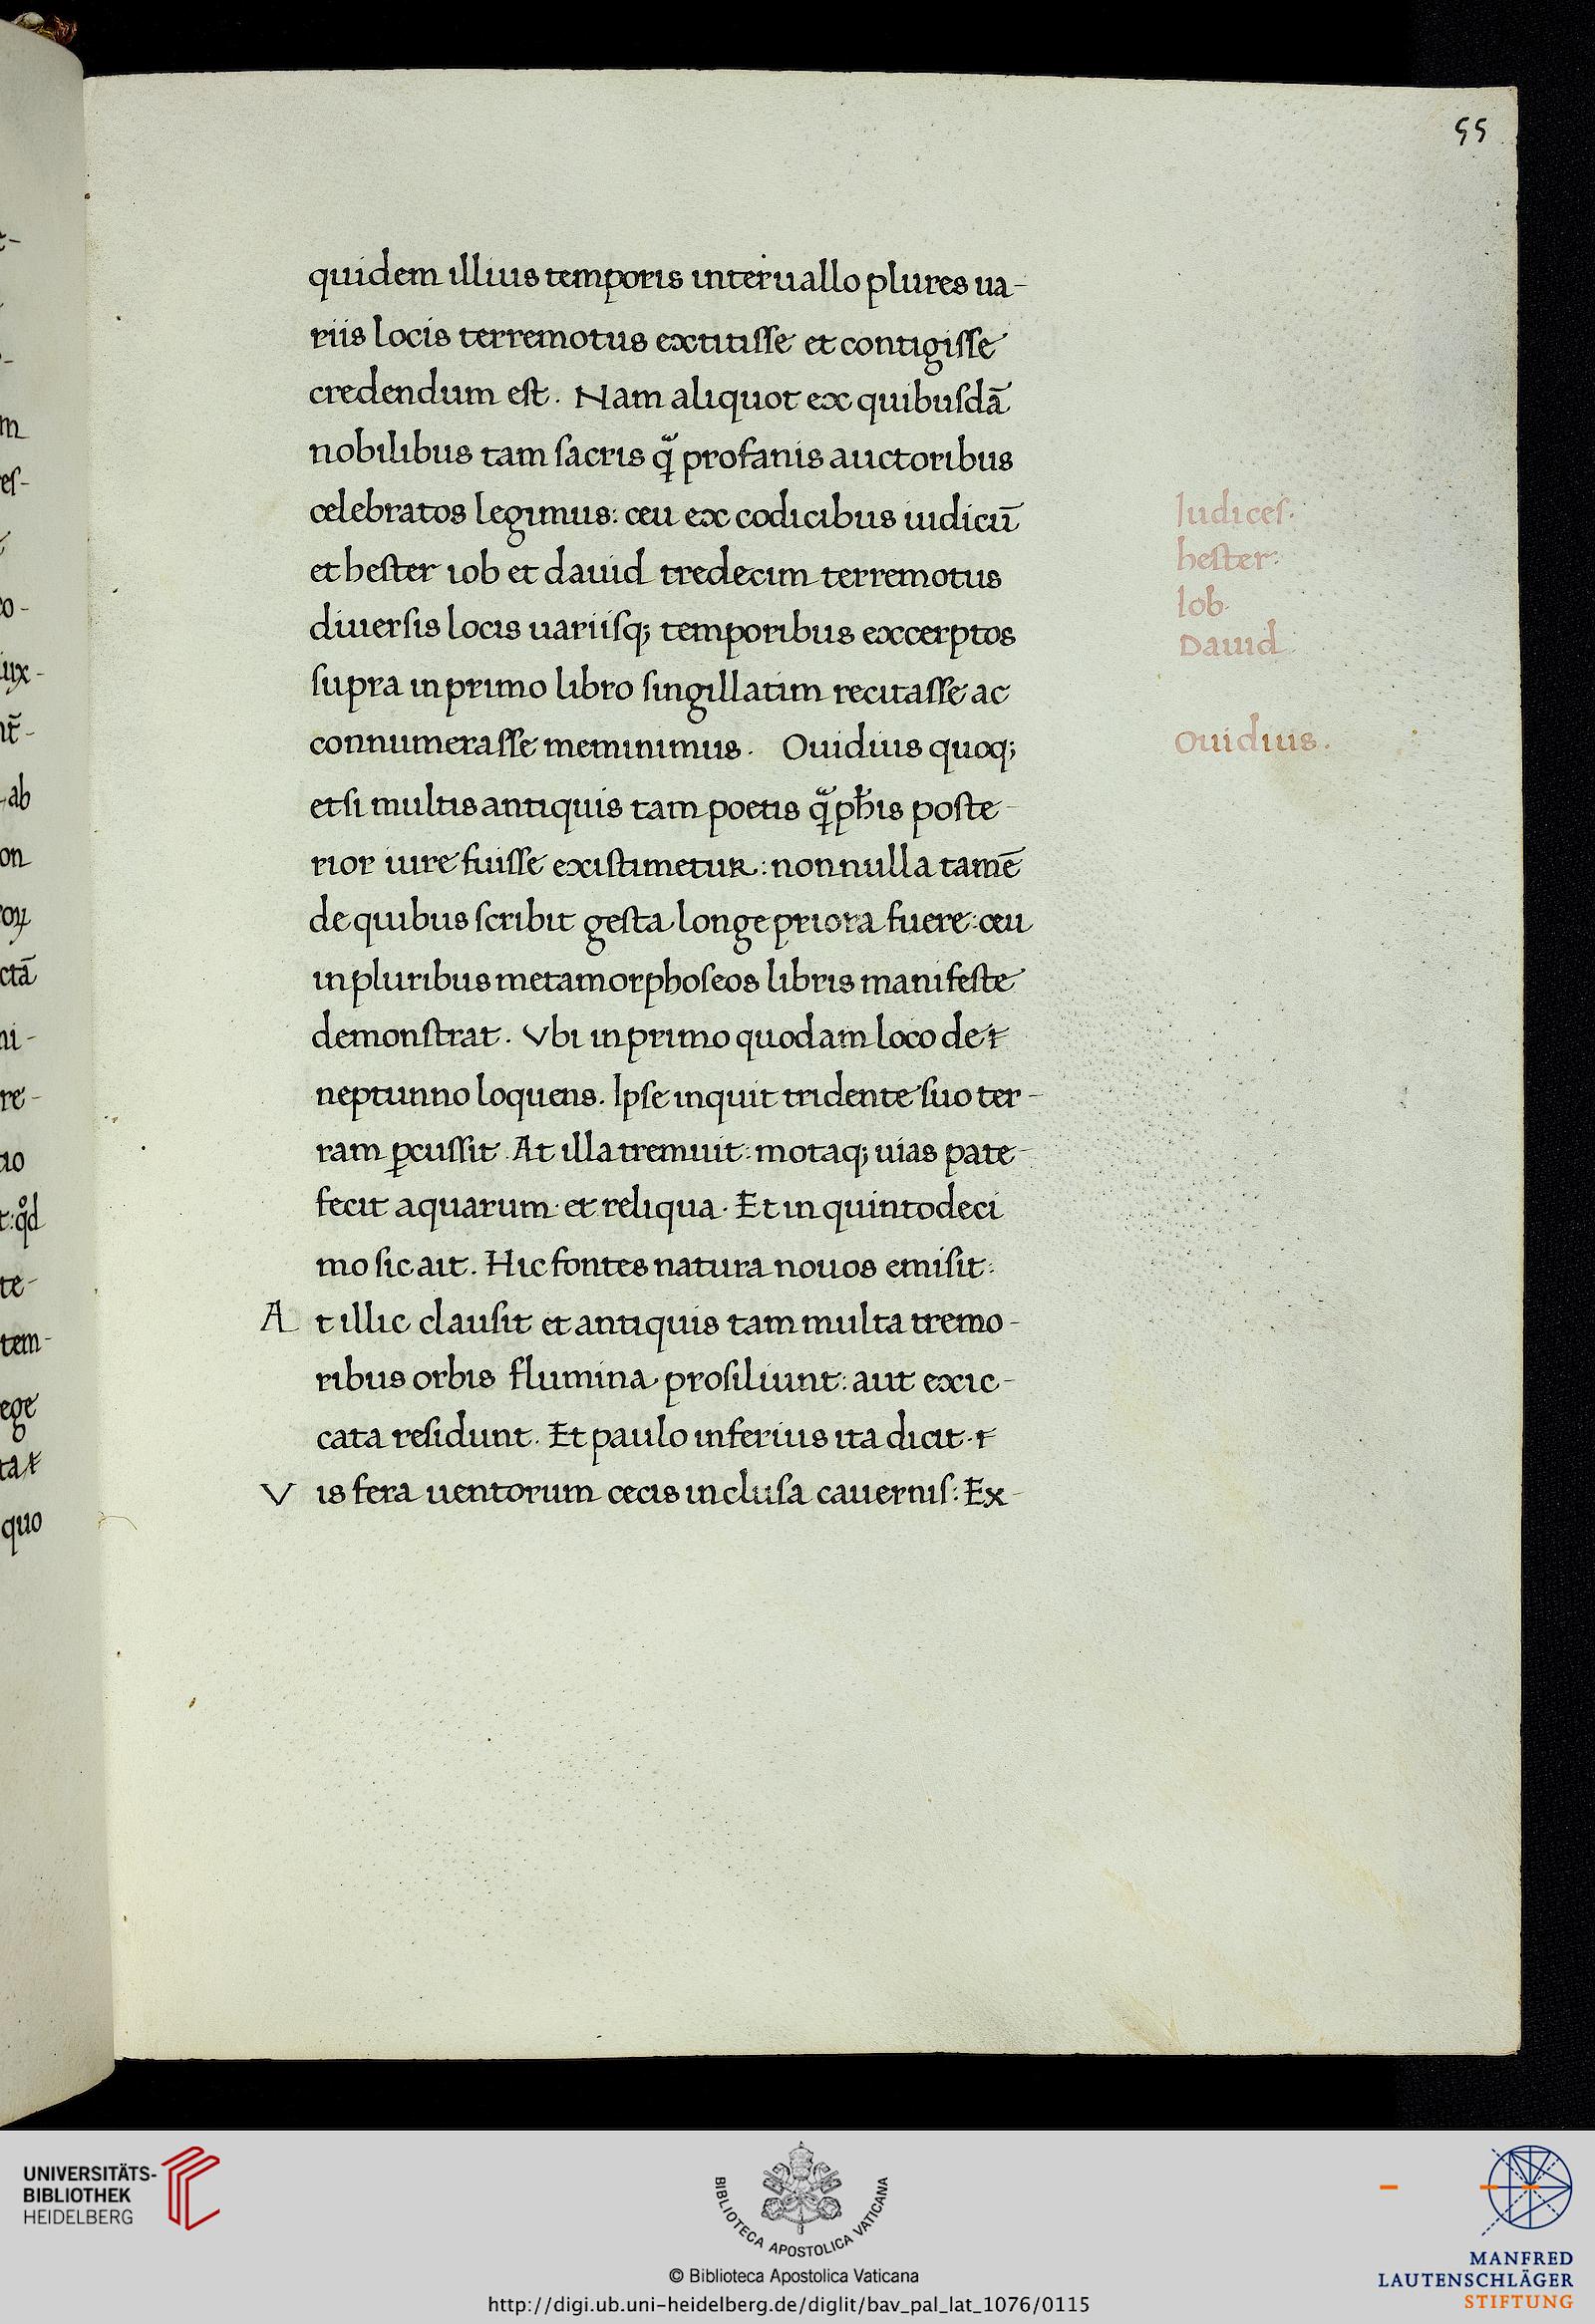 55
quidem illius temporis interuallo plures ua-
riis locis terremotus extitisse et contigisse
credendum est. Nam aliquot ex quibusdā
nobilibus tam sacris q̄ profanis auctoribus
celebratos legimus: ceu ex codicibus iudicū
et hester iob et dauid tredecim terremotus
diuersis locis uariisq; temporibus excerptos
supra in primo libro singillatim recitasse ac
connumerasse meminimus. Ouidius quoq;
etsi multis antiquis tam poetis q̄ pħis poste-
rior iure fuisse existimetur: nonnulla tamē
de quibus scribit gesta longe priora fuere: ceu
in pluribus metamorphoseos libris manifeste
demonstrat. Vbi in primo quodam loco de
neptunno loquens. Ipse inquit tridente suo ter-
ram ꝑcussit. At illa tremuit: motaq; uias pate-
fecit aquarum. et reliqua. Et in quintodeci
mo sic ait. Hic fontes natura nouos emisit:
At illic clausit et antiquis tam multa tremo-
ribus orbis flumina prosiliunt: aut exic-
cata residunt. Et paulo inferius ita dicit.
Vis fera uentorum cecis inclusa cauernis: Ex-
Iudices.
hester:
Iob.
Dauid
Ouidius.
m
es-
o-
iux-
ab
on
ctā
ni-
re-
io
te-
tem-
ege
quo
UNIVERSITÄTS-
BIBLIOTHEK
HEIDELBERG
BIBLIOTECA APOSTOLICA VATICANA
© Biblioteca Apostolica Vaticana
http://digi.ub.uni-heidelberg.de/diglit/bav_pal_lat_1076/0115
MANFRED
LAUTENSCHLÄGER
STIFTUNG